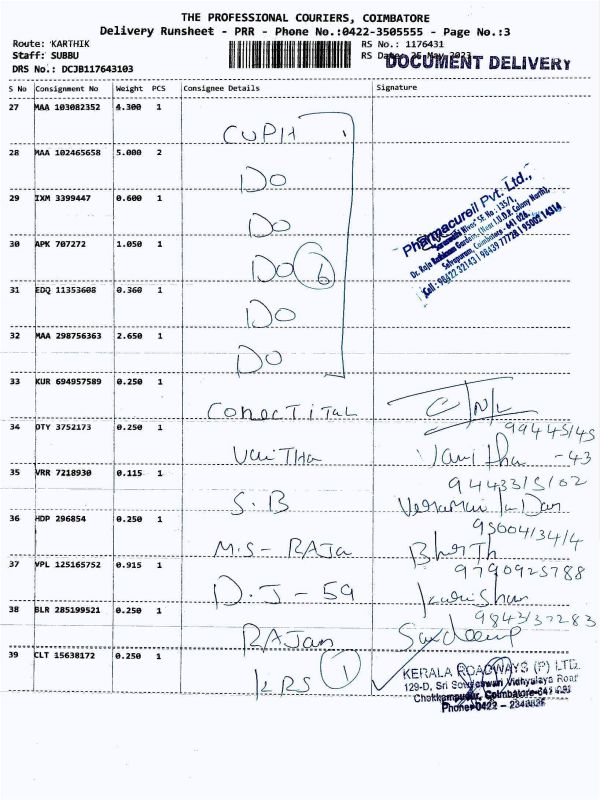 THE PROFESSIONAL COURIERS, COIMBATORE
Delivery Runsheet - PRR - Phone No.:0422-3505555 - Page No.:3
Route: KARTHIK
RS No.: 1176431
Staff: SUBBU
RS Date: 25 May 2023
DOCUMENT DELIVERY
DRS No.: DCJB117643103
S No Consignment No Weight PCS Consignee Details Signature
27 MAA 103082352 4.300 1
CUPH
28 MAA 102465658 5.000 2
DO
29 IXM 3399447 0.600 1
DO
30 APK 707272 1.050 1
DO 6
31 EDQ 11353608 0.360 1
DO
32 MAA 298756363 2.650 1
DO
Pharmacureil Pvt. Ltd.,
"Saramully Nivas" SF. No : 135/1,
Dr. Raja Rathinam Gardens, (Near I.U.D.P. Colony North),
Selvapuram, Coimbatore - 641 026.
Cell : 98422 32143 | 98439 77728 | 95002 14314
33 KUR 694957589 0.250 1
Conectital
34 OTY 3752173 0.250 1
99445145
Vanitha Vanitha -43
35 VRR 7218930 0.115 1
9443315102
S.B
36 HDP 296854 0.250 1
9500413414
M.S - RAJA
37 VPL 125165752 0.915 1
9790925788
D.J - 59
38 BLR 285199521 0.250 1
9843137283
RAJan Sandeep
39 CLT 15638172 0.250 1
KRS 1
KERALA ROADWAYS (P) LTD.
129-D, Sri Sowdeswari Vidhyalaya Road
Chokkampudur, Coimbatore-641 039
Phone : 0422 -